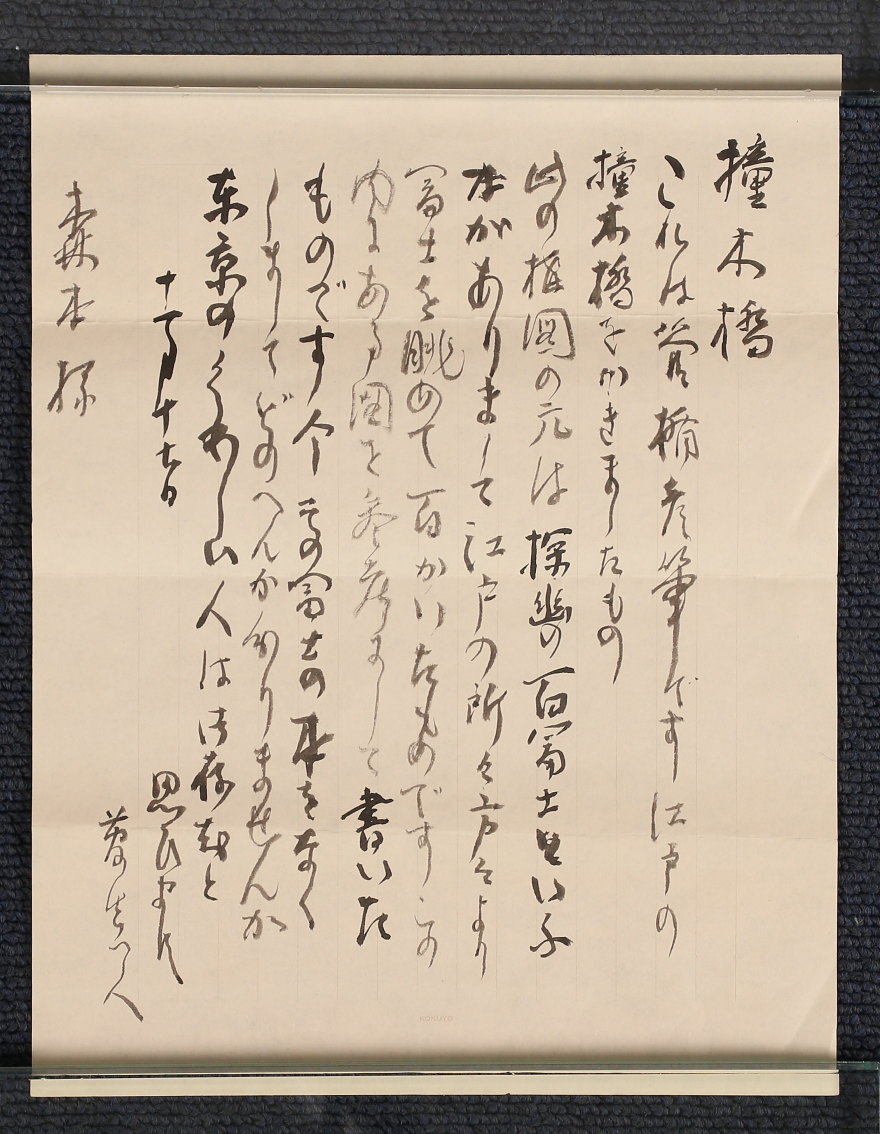 撞木橋
これは菅楯彦筆です江戸の
撞木橋をかきましたもの
此の構図の元は探幽の百富士といふ
本がありまして江戸の所々方々より
富士を眺めて百かいたものですその
内にある図を参考まして書いた
ものです今この富士の本をなく
しましてどのへんかわかりませんか
東京のくわしい人は御存知と
思ひます
十一月十七日
森本様
KOKUYO